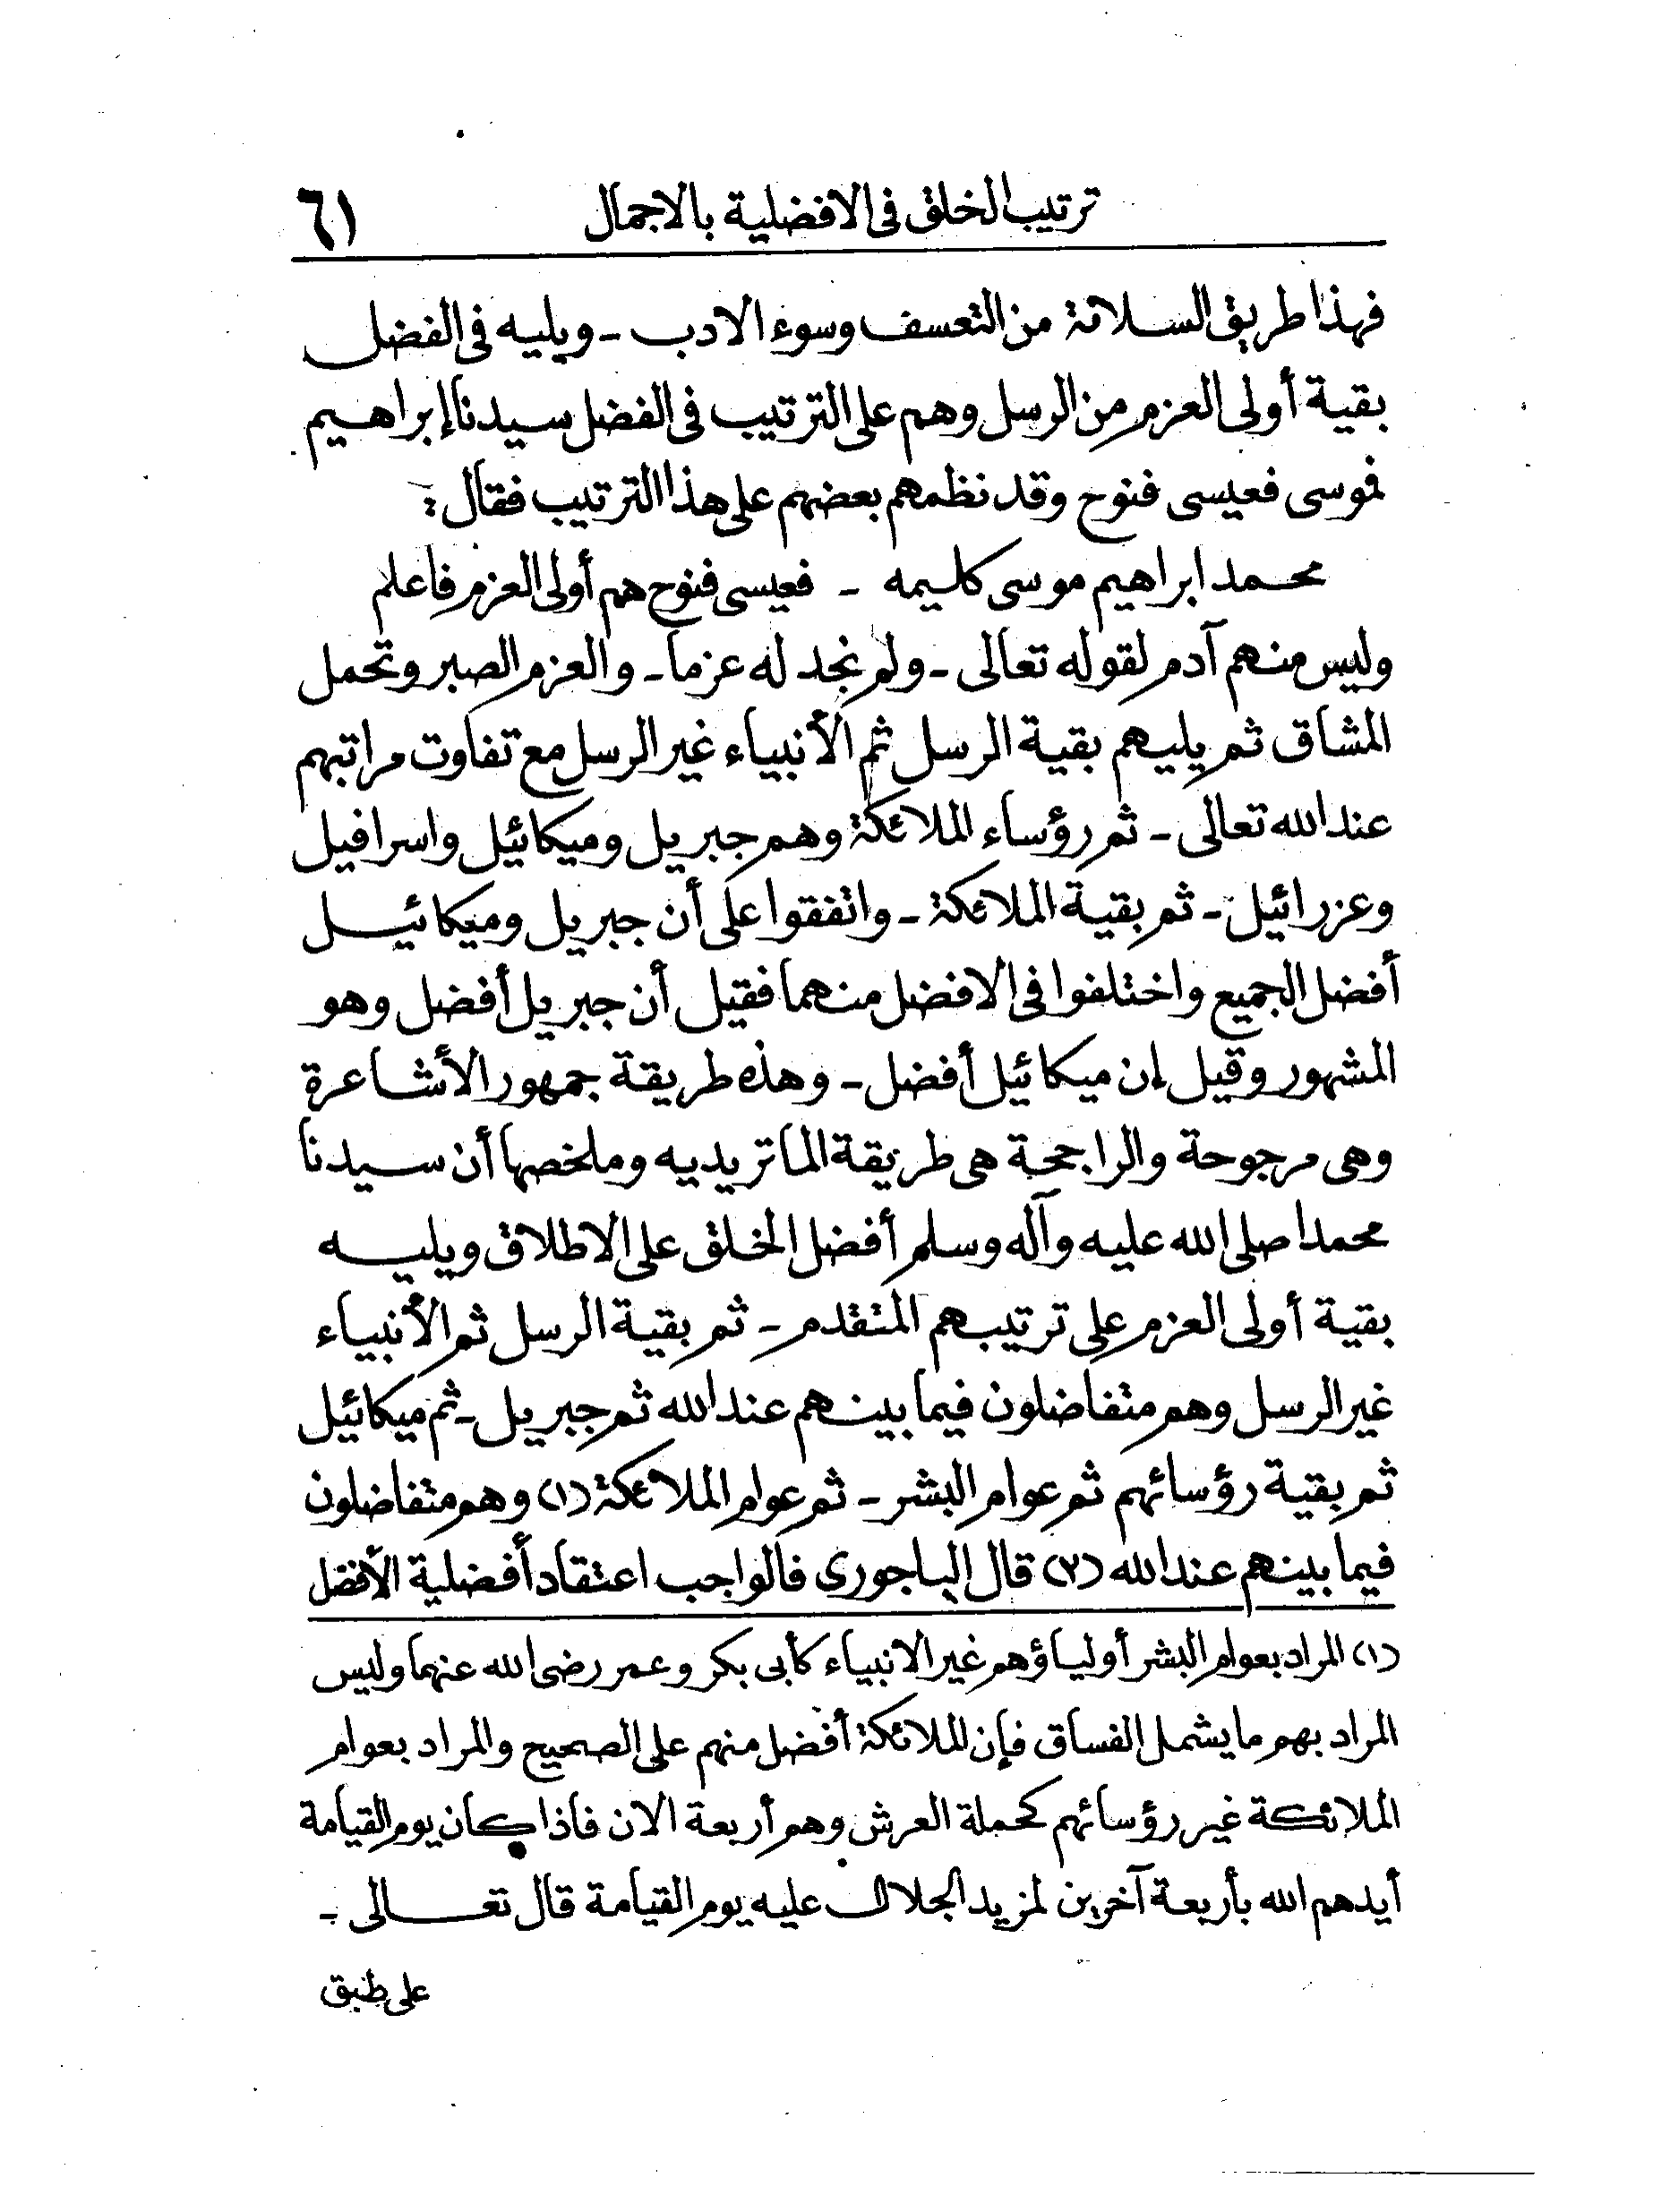 ترتيب الخلق فى الافضلية بالاجمال ٦١
فهذا طريق السلامة من التعسف وسوء الادب - ويليه فى الفضل
بقية أولى العزم من الرسل وهم على الترتيب فى الفضل سيدنا إبراهيم
فموسى فعيسى فنوح وقد نظمهم بعضهم على هذا الترتيب فقال :
محمد ابراهيم موسى كليمه - فعيسى فنوح هم أولى العزم فاعلم
وليس منهم آدم لقوله تعالى - ولم نجد له عزما - والعزم الصبر وتحمل
المشاق ثم يليهم بقية الرسل ثم الأنبياء غير الرسل مع تفاوت مراتبهم
عند الله تعالى - ثم رؤساء الملائكة وهم جبريل وميكائيل واسرافيل
وعزرائيل - ثم بقية الملائكة - واتفقوا على أن جبريل وميكائيل
أفضل الجميع واختلفوا فى الافضل منهما فقيل أن جبريل أفضل وهو
المشهور وقيل إن ميكائيل أفضل - وهذه طريقة جمهور الأشاعرة
وهى مرجوحة والراجحة هى طريقة الماتريديه وملخصها أن سيدنا
محمدا صلى الله عليه وآله وسلم أفضل الخلق على الاطلاق ويليه
بقية أولى العزم على ترتيبهم المتقدم - ثم بقية الرسل ثم الأنبياء
غير الرسل وهم متفاضلون فيما بينهم عند الله ثم جبريل - ثم ميكائيل
ثم بقية رؤسائهم ثم عوام البشر - ثم عوام الملائكة (١) وهم متفاضلون
فيما بينهم عند الله (٢) قال الباجورى فالواجب اعتقاد أفضلية الأفضل
(١) المراد بعوام البشر أولياؤهم غير الانبياء كأبى بكر وعمر رضى الله عنهما وليس
المراد بهم ما يشمل الفساق فإن الملائكة أفضل منهم على الصحيح والمراد بعوام
الملائكة غير رؤسائهم كحملة العرش وهم أربعة الان فاذا كان يوم القيامة
أيدهم الله بأربعة آخرين لمزيد الجلال عليه يوم القيامة قال تعالى -
على طبق